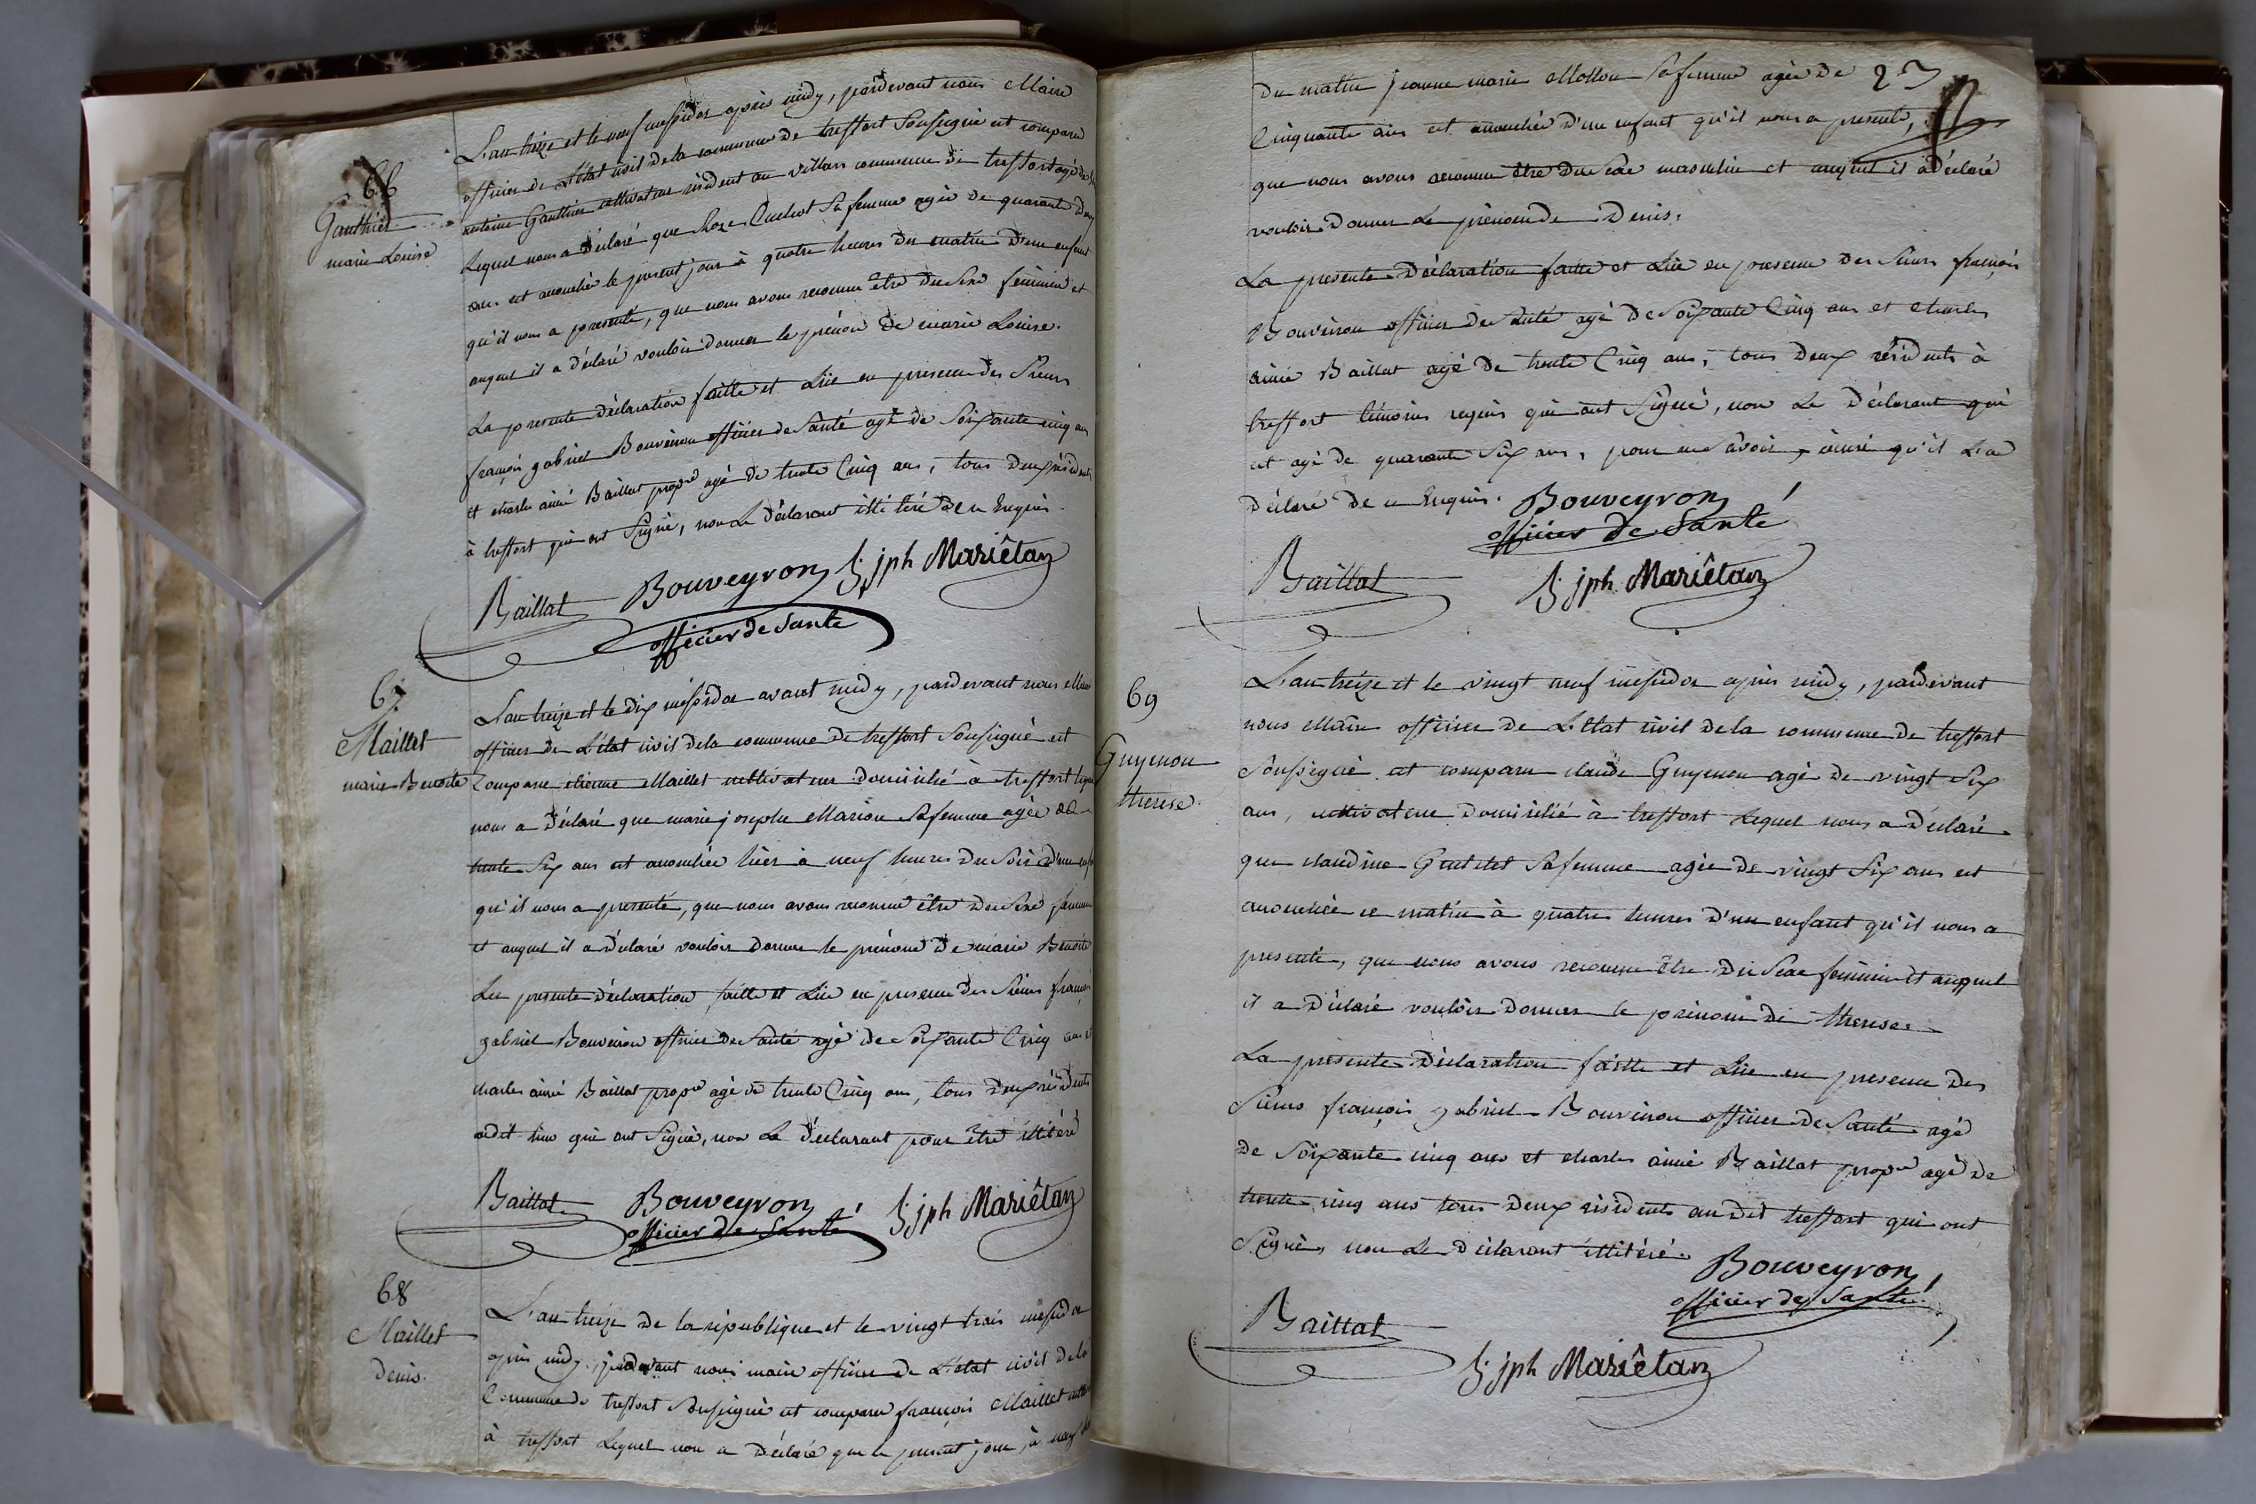 66
Gauthier
marie Louise
L'an treize et le neuf messidor après midy, pardevant nous Maire
officier de L'état civil de la commune de treffort Soussigné est comparu
antoine Gauthier cultivateur résident au villars commune de treffort agé de
Lequel nous a déclaré que Roze Cuchot Sa femme agée de quarante deux
ans est accouchée le present jour à quatre heures du matin d'une enfant
qu'il nous a presenté, que nous avons reconnu être du Sexe féminin et
auquel il a déclaré vouloir donner le prénom de marie Louise.
La presente déclaration faitte et Lüe en presence des Sieurs
françois gabriel Bouveiron officier de Santé agé de Soixante cinq ans
et charles aimé Baillat propre agé de trente Cinq ans, tous deux résidents
à treffort qui ont Signé, non Le déclarant illitéré de ce Enquis.
Baillat Bouveyron J; jph Mariêtan
officier de Santé
67
Maillet
marie Benoite
L'an treize et le dix messidor avant midy, pardevant nous Maire
officier de L'état civil dela commune de treffort Soussigné est
Comparu etienne Maillet cultivateur domicilié à treffort lequel
nous a déclaré que marie josephe Marion Sa femme agée de
trente Six ans est accouchée hier à neuf heures du Soir d'une enfant
qu'il nous a presenté, que nous avons reconnu être du Sexe féminin
et auquel il a déclaré vouloir donner le prénom de marie Benoite
La presente déclaration faitte et Lüe en presence des Sieurs françois
gabriel Bouveiron officier de Santé agé de Soixante Cinq ans et
charles aimé Baillat propre agé de trente Cinq ans, tous deux résidents
audit lieu qui ont Signé, non Le déclarant pour être illitéré
Baillat Bouveyron J; jph Mariêtan
officier de Santé
68
Maillet
denis.
L'an treize de la république et le vingt trois messidor
après midy, pardevant nous maire officier de L'état civil dela
Commune de treffort Soussigné est comparu françois Maillet
à treffort Lequel nou a déclaré que le present jour, à
du matin jeanne marie Mollon Sa femme agée de 23
Cinquante ans est accouchée d'un enfant qu'il nous a presenté,
que nous avons reconnu être du Sexe masculin et auquel il a déclaré
vouloir donner Le prénom de Denis.
La presente déclaration faitte et Lüe en presence des Sieurs françois
Bouveiron officier de Santé agé de Soixante Cinq ans et charles
aimé Baillat agé de trente Cinq ans, tous deux résidents à
treffort témoins requis qui ont Signé, non Le déclarant qui
est agé de quarante Six ans, pour ne Savoir, ainsi qu'il L'a
déclaré de ce Enquis. Bouveyron
officier de Santé
Baillat J; jph Mariêtan
69
Guyenon
therese.
L'an treize et le vingt neuf messidor après midy, pardevant
nous Maire officier de L'état civil dela commune de treffort
Soussigné est comparu claude Guyenon agé de vingt Six
ans, cultivateur domicilié à treffort Lequel nous a déclaré
que claudine Sa femme agée de vingt Six ans est
accouchée ce matin à quatre heures d'un enfant qu'il nous a
presenté, que nous avons reconnu être du Sexe feminin et auquel
il a déclaré vouloir donner le prénom de therese.
La présente déclaration faitte et Lüe en presence des
Sieurs françois gabriel Bouveiron officier de Santé agé
de Soixante cinq ans et charles aimé Baillat propre agé de
trente cinq ans tous deux résidents au dit treffort qui ont
Signé, non Le déclarant illitéré. Bouveyron
officier de Santé
Baillat
J; jph Mariêtan